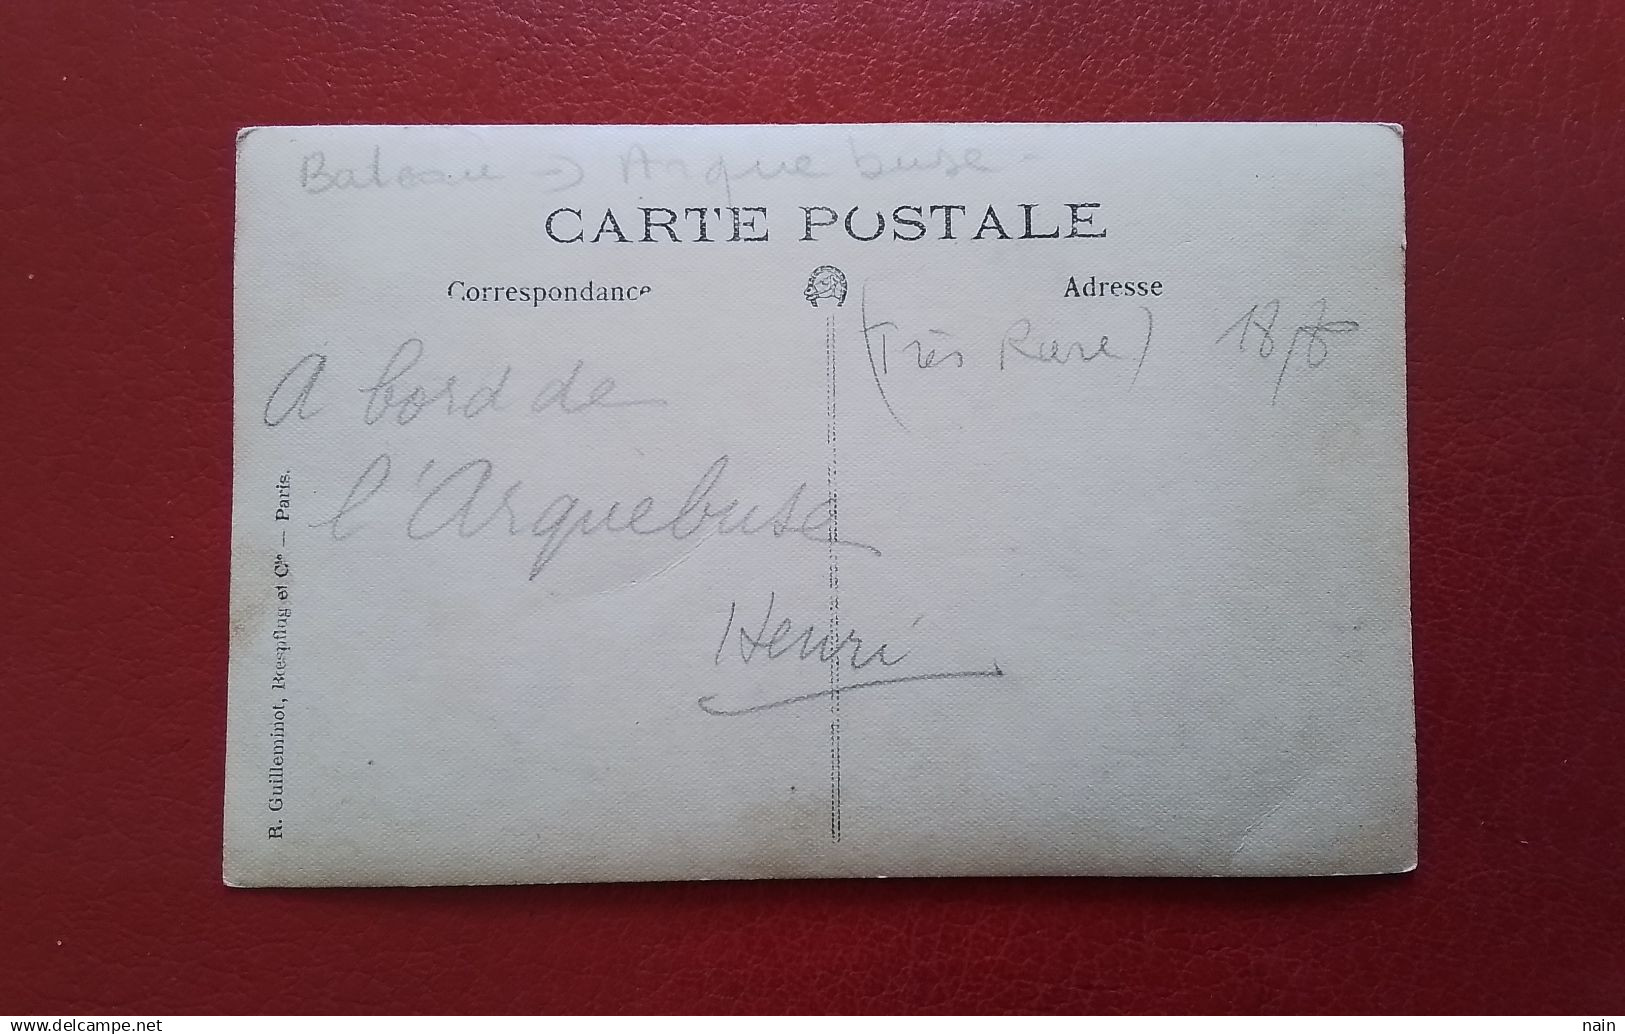 Bateau → Arquebuse -
CARTE POSTALE
Correspondance
Adresse
(Très Rare)
A bord de
l'Arquebuse
Henri
R. Guilleminot, Bœspflug et Cie — Paris.
nain
www.delcampe.net